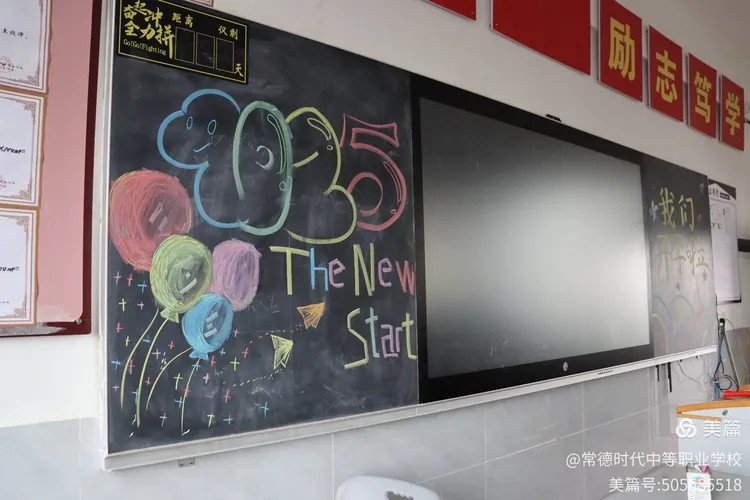 奋起冲
全力拼
Go!Go!Fighting
距离 仪剩
天
2025
The New
Start
励志笃学
我们
开工啦
美篇
@常德时代中等职业学校
美篇号:505585518